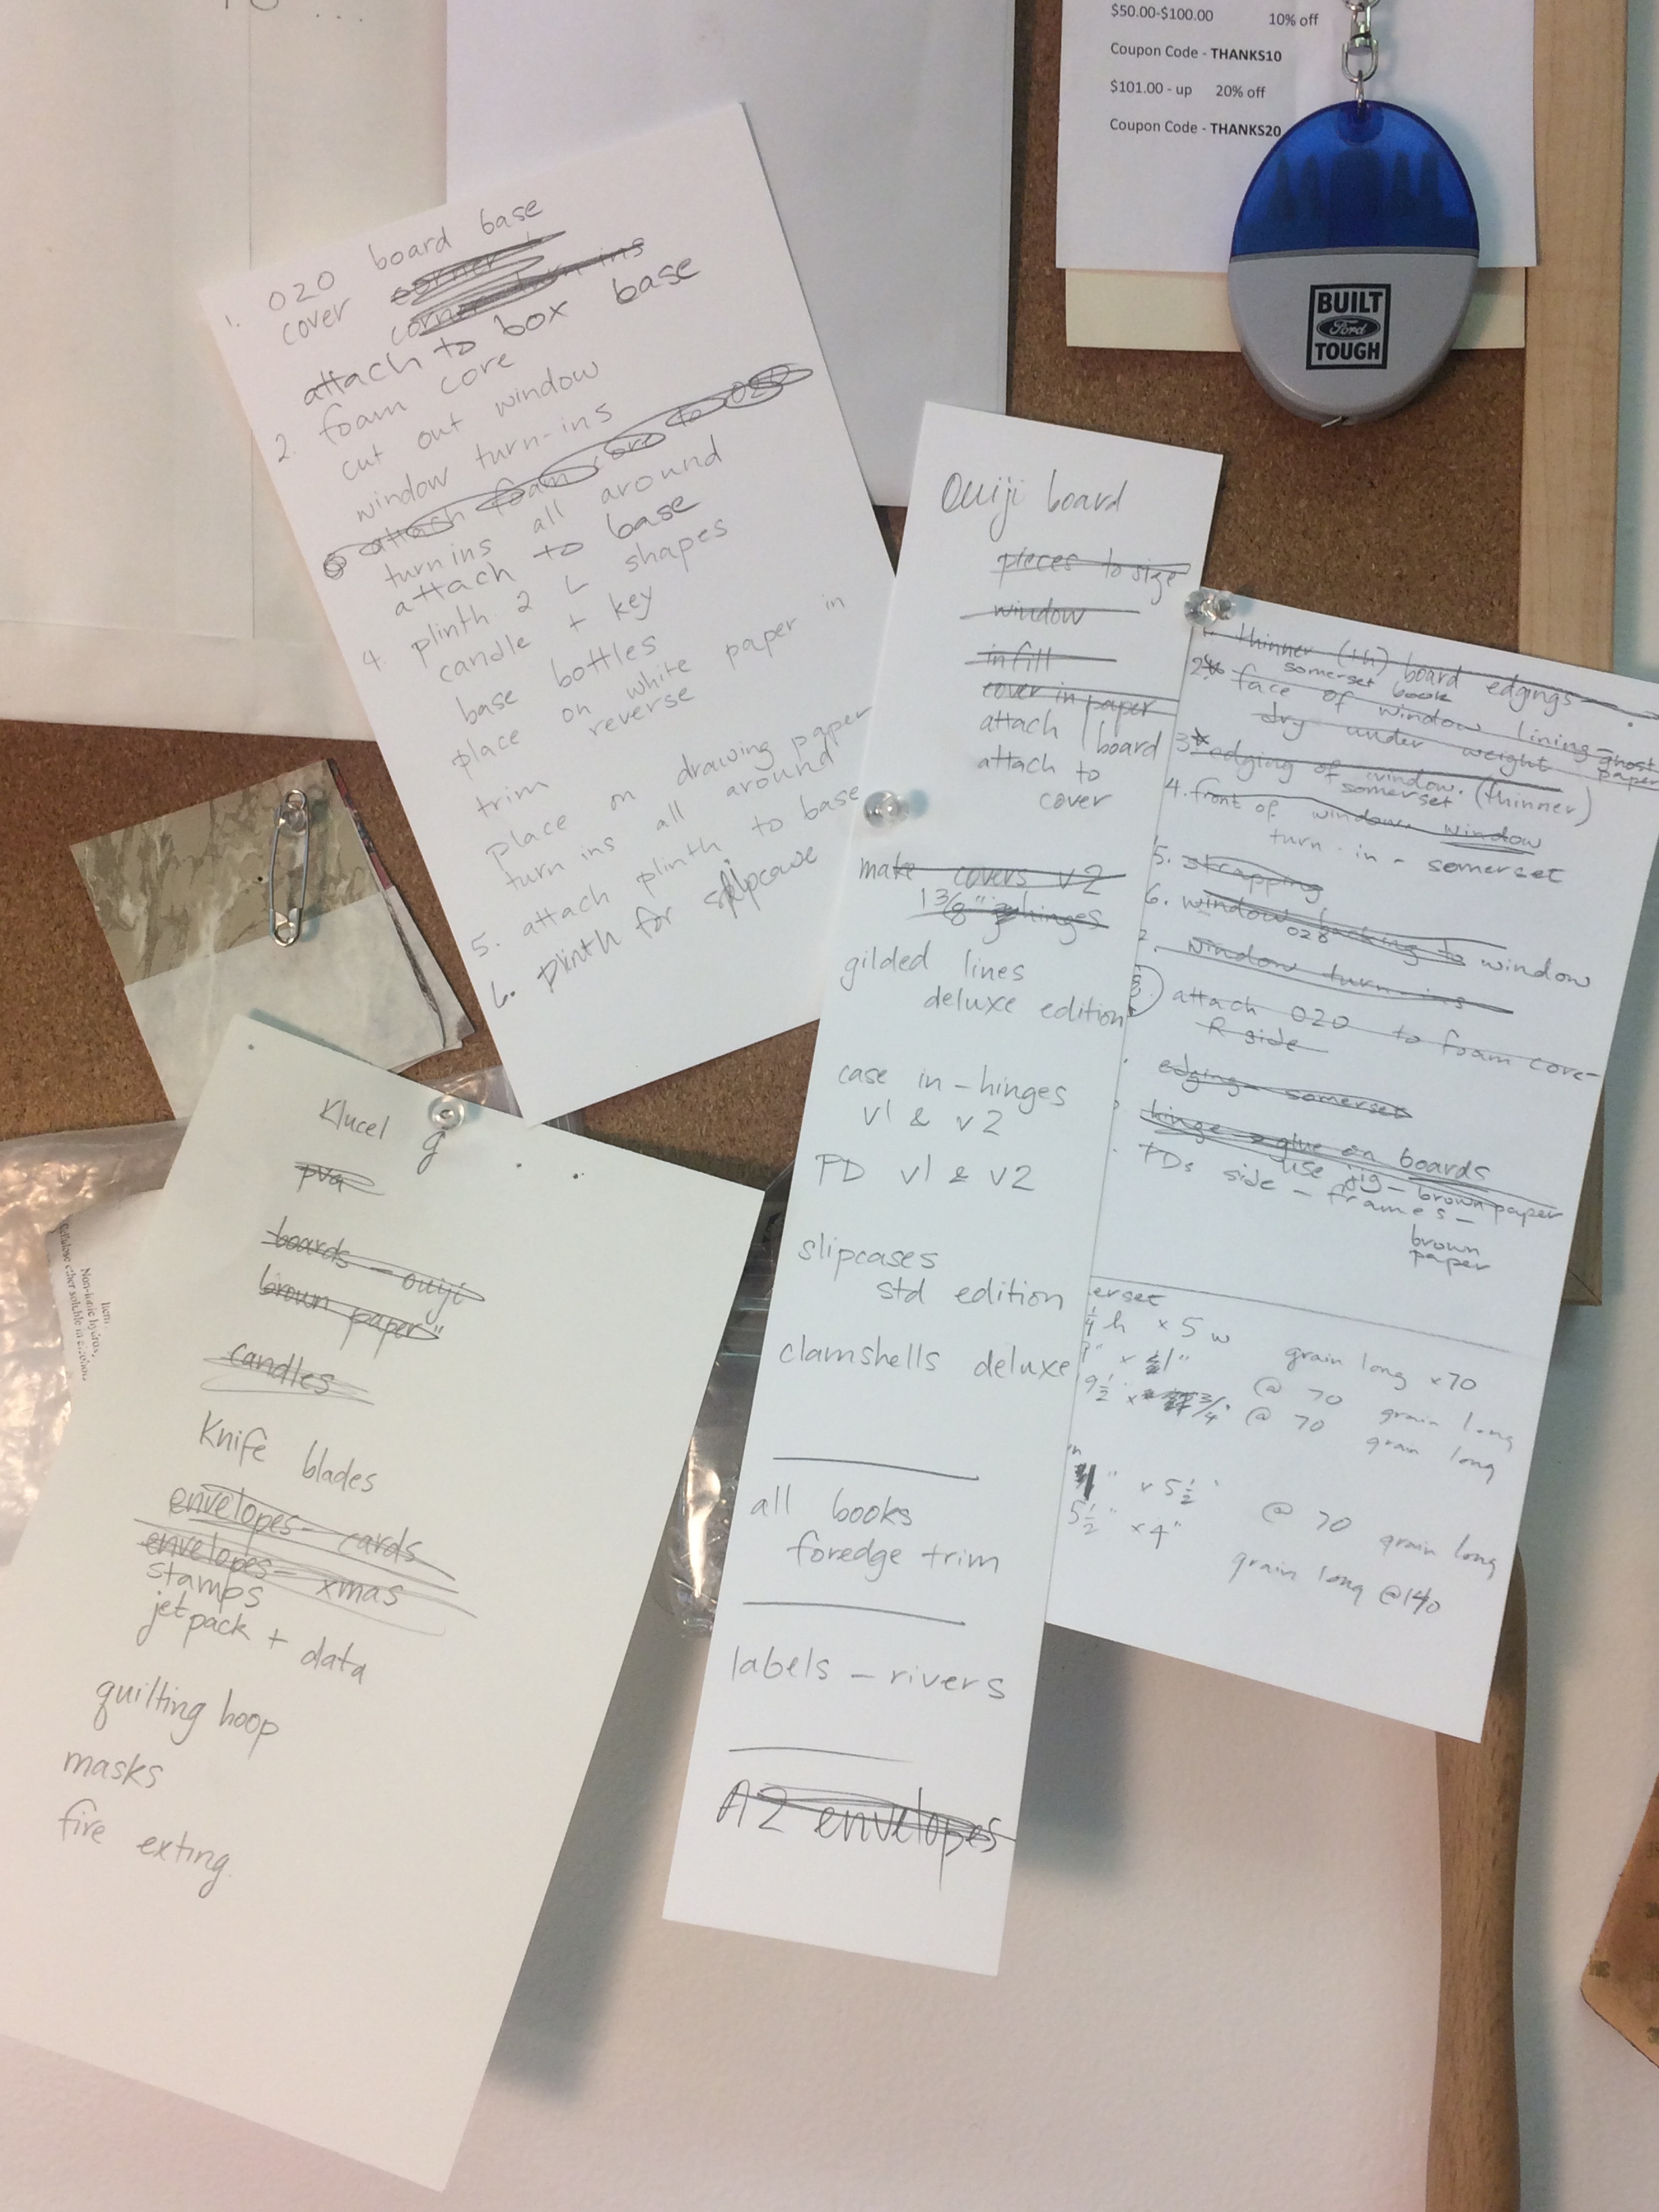 $50.00-$100.00 10% off
Coupon Code - THANKS10
$101.00 - up 20% off
Coupon Code - THANKS20
BUILT
Ford
TOUGH
1. 020 board base
cover corner
corner turn-ins
attach to box base
2. foam core
cut out window
window turn-ins
attach foam core to 020
turn ins all around
attach to base
4. plinth 2 L shapes
candle + key
base bottles
place on white paper in
reverse
trim
place on drawing paper
turn ins all around
5. attach plinth to base
6. plinth for slipcase
Ouiji board
pieces to size
window
infill
cover in paper
attach board
attach to
cover
make covers v2
1 3/8" hinges
gilded lines
deluxe edition
case in - hinges
v1 & v2
PD v1 & v2
slipcases
std edition
clamshells deluxe
all books
foredge trim
labels - rivers
A2 envelopes
1. thinner (th) board edgings
somerset book
2. face of window lining - ghost
paper
dry under weight
3. edging of window. (thinner)
somerset
4. front of window window
turn-in - somerset
5. strapping
6. window backing to window
020
window turn-ins
attach 020 to foam core-
R side
edging - somerset
hinge & glue on boards
use jig - brown paper
PDs side - frames -
brown
paper
erset
1/4 h x 5 w grain long x70
9" x 1" @ 70 grain long
9 1/2 x 3/4" @ 70 grain long
1" x 5 1/2" @ 70 grain long
5 1/2" x 4" grain long @140
Klucel g
pva
boards - ouiji
brown paper"
candles
Knife blades
envelopes - cards
envelopes - xmas
stamps
jetpack + data
quilting hoop
masks
fire exting.
Item
Non-ionic hydrox
Cellulose ether soluble in